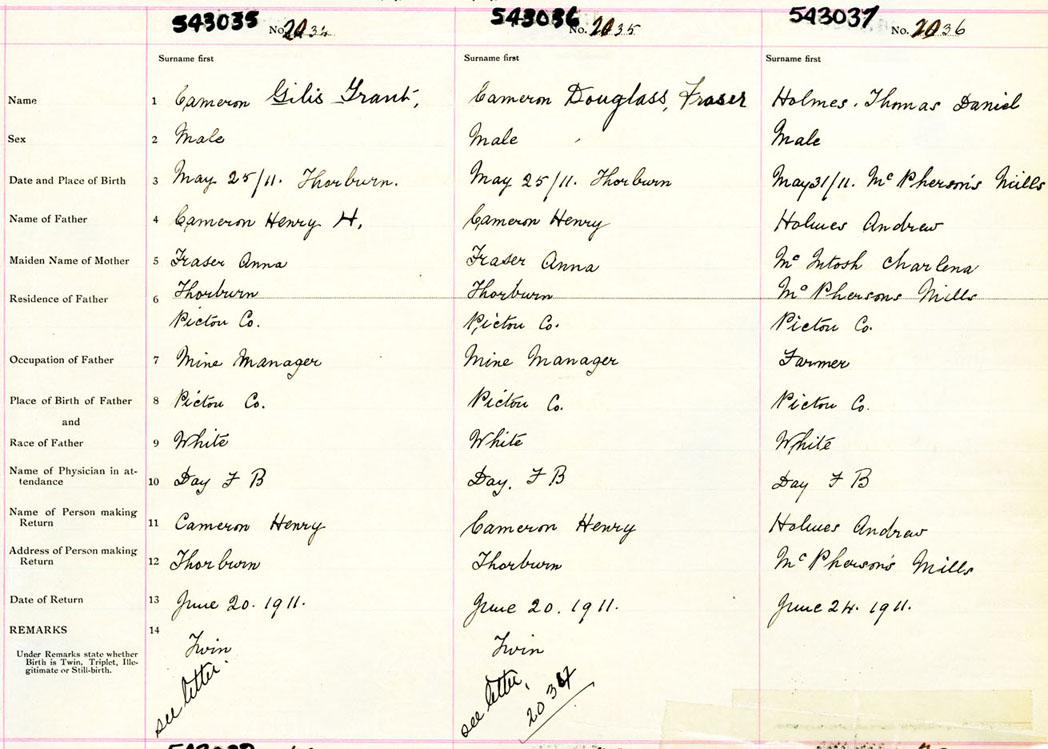 543035 No. 2034
543036 No. 2035
543037 No. 2036
Surname first
Surname first
Surname first
Name 1 Cameron Gilis Grant, Cameron Douglass, Fraser Holmes. Thomas Daniel
Sex 2 Male Male Male
Date and Place of Birth 3 May 25/11. Thorburn. May 25/11. Thorburn May 31/11. Mc Pherson's Mills
Name of Father 4 Cameron Henry H. Cameron Henry Holmes Andrew
Maiden Name of Mother 5 Fraser Anna Fraser Anna Mc Intosh Charlena
Residence of Father 6 Thorburn Thorburn Mc Phersons Mills
Pictou Co. Pictou Co. Pictou Co.
Occupation of Father 7 Mine Manager Mine Manager Farmer
Place of Birth of Father 8 Pictou Co. Pictou Co. Pictou Co.
and
Race of Father 9 White White White
Name of Physician in at-
tendance 10 Day F B Day. F B Day F B
Name of Person making
Return 11 Cameron Henry Cameron Henry Holmes Andrew
Address of Person making
Return 12 Thorburn Thorburn Mc Pherson's Mills
Date of Return 13 June 20. 1911. June 20. 1911. June 24. 1911.
REMARKS 14
Under Remarks state whether
Birth is Twin, Triplet, Ille-
gitimate or Still-birth.
Twin Twin
see letter. see letter,
2034